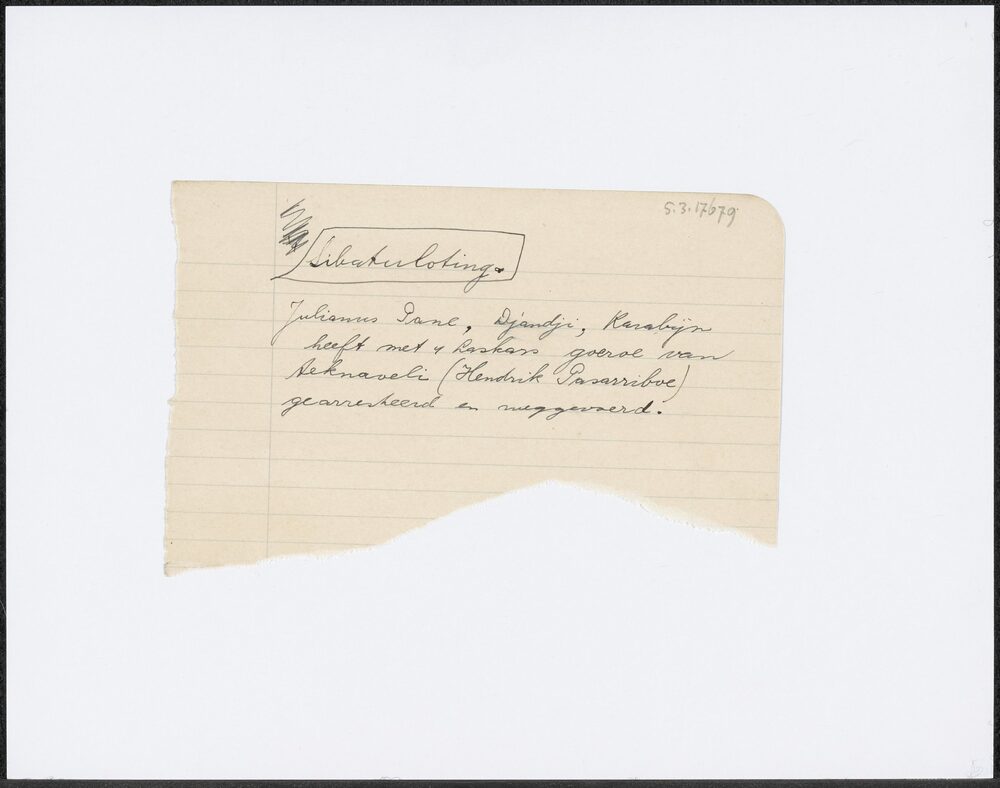 5.3.17679
Sibatuloting.
Julianus Pane, Djandji, Karabijn
heeft met 4 Laskars goeroe van
Aeknaveli (Hendrik Pasarriboe)
gearresteerd en weggevoerd.